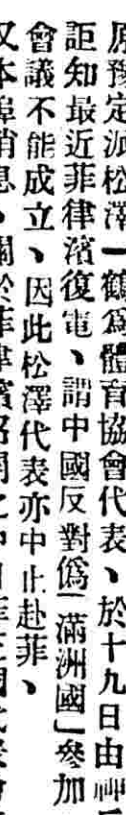 原豫定派松澤一鶴爲體育協會代表、於十九日由神戶
詎知最近菲律濱復電、謂中國反對僞「滿洲國」參加
會議不能成立、因此松澤代表亦中止赴菲、
又本埠消息、關於菲律濱